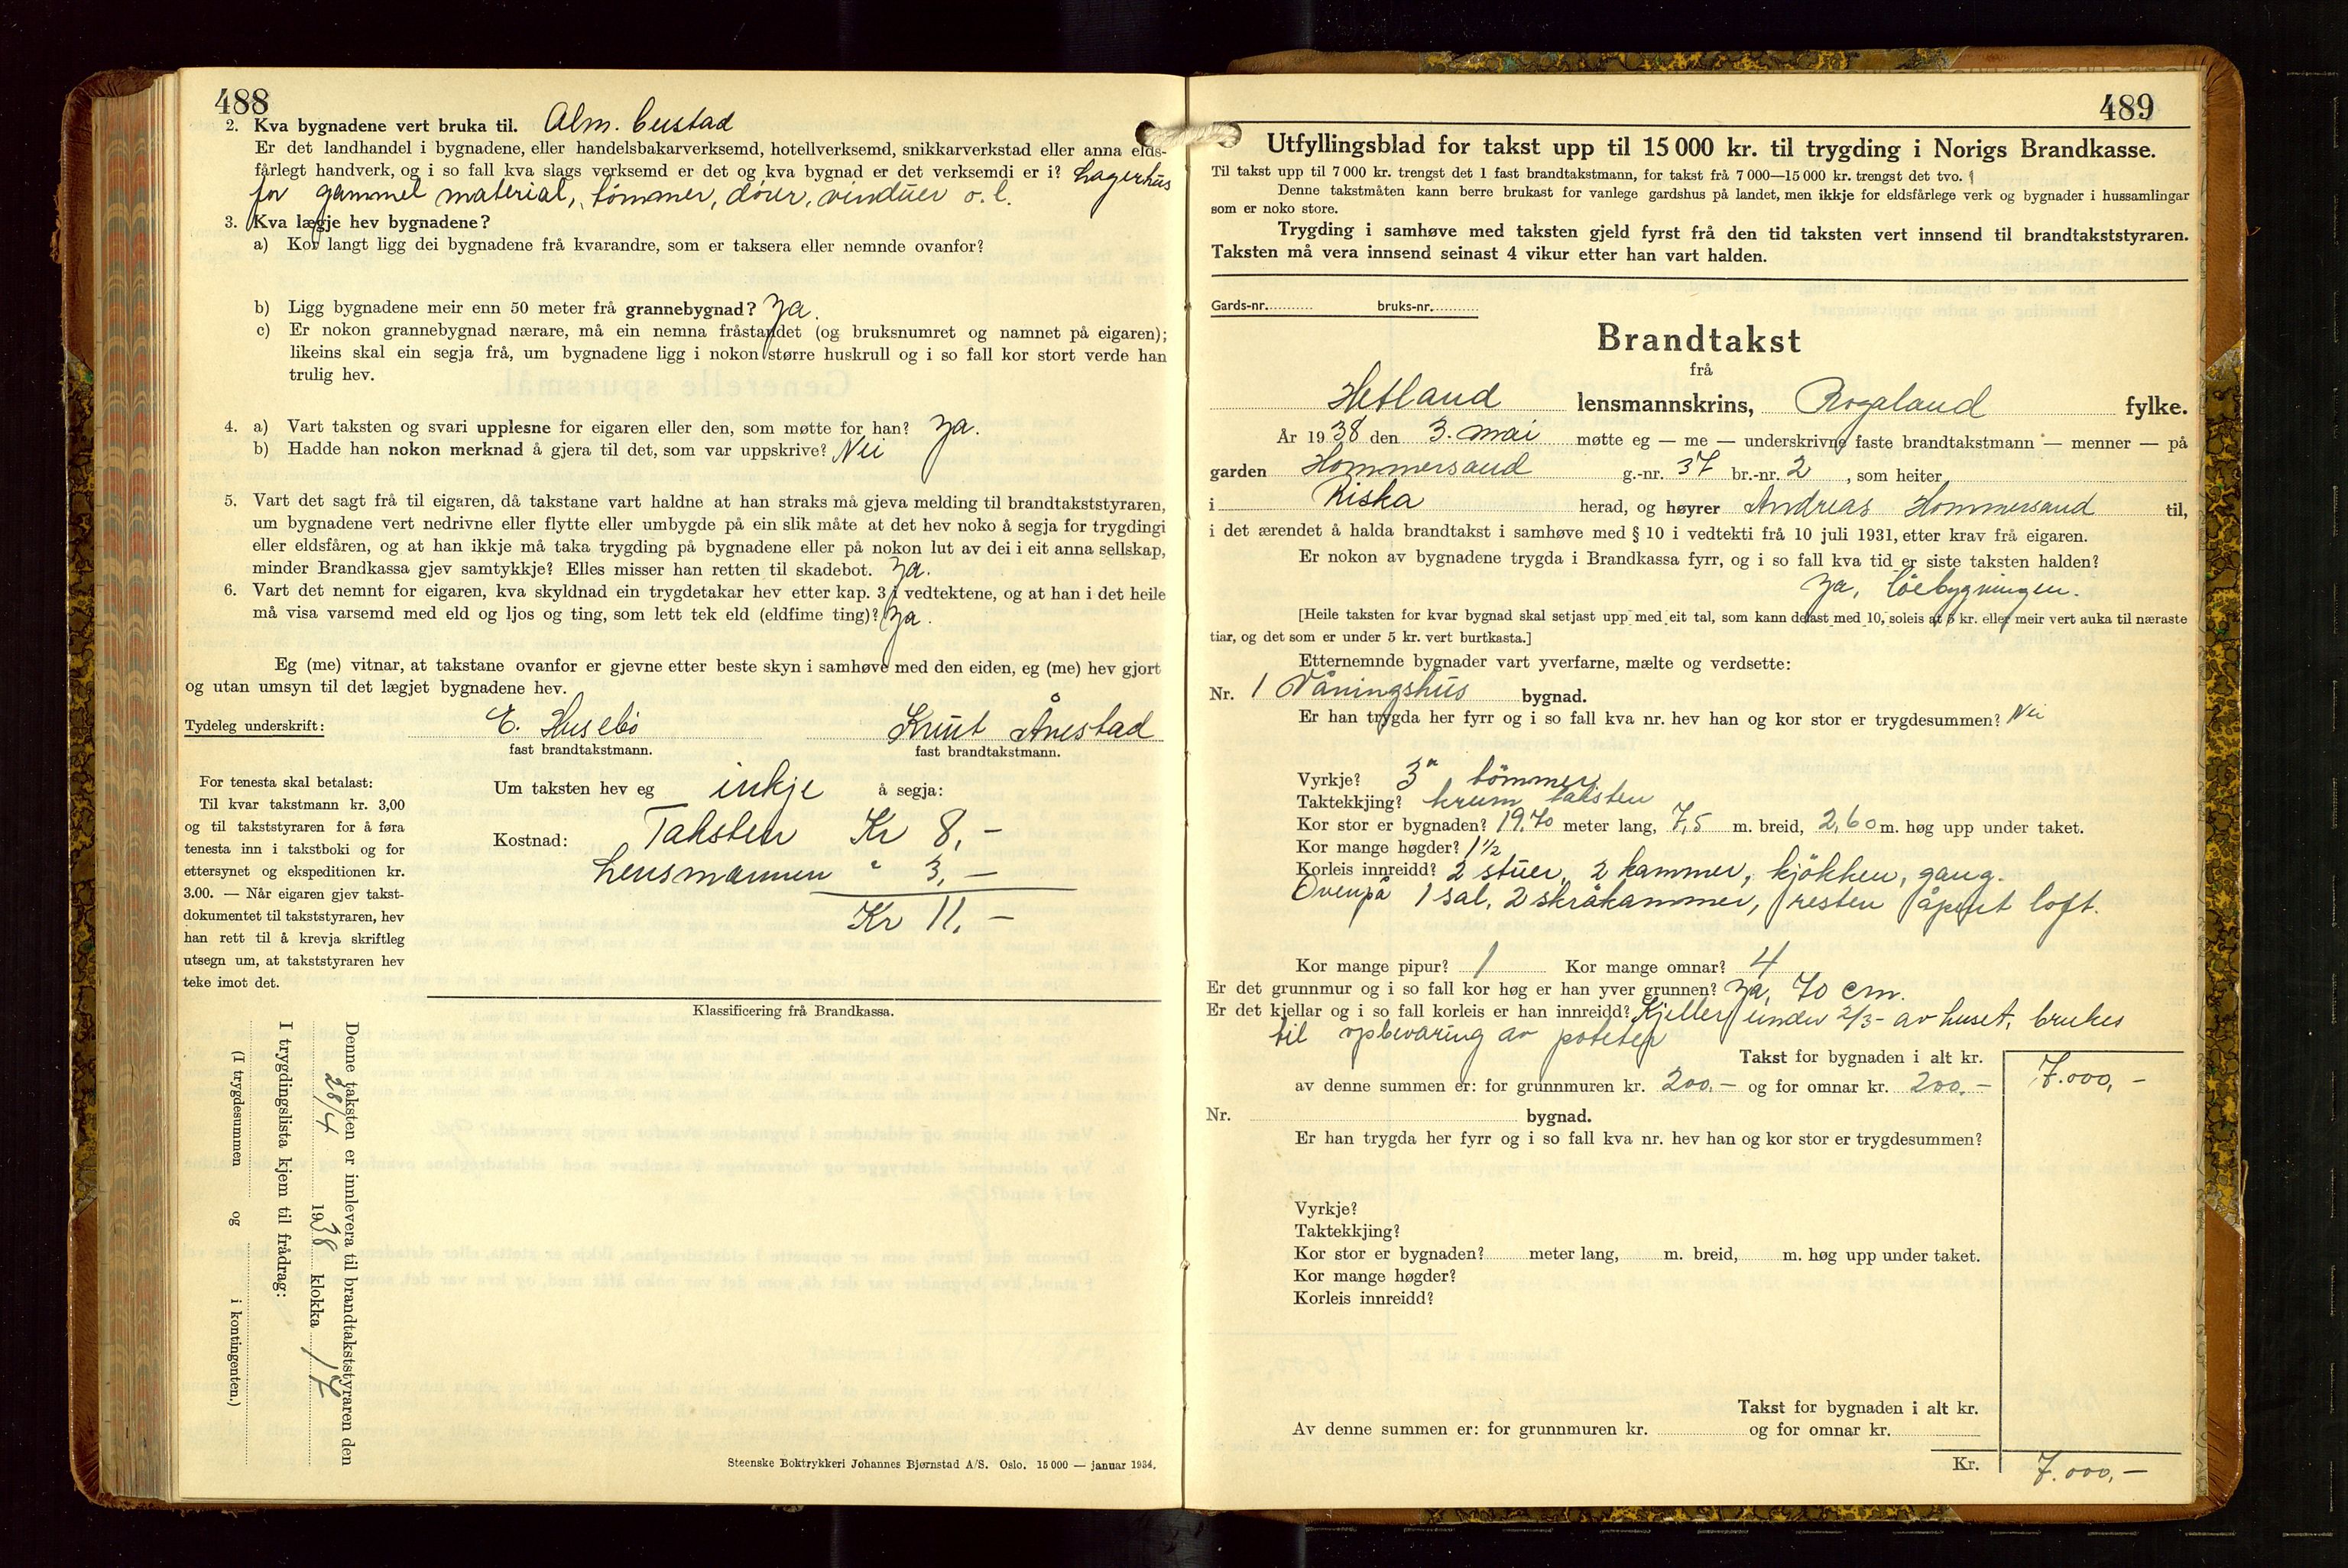 488
2. Kva bygnadene vert bruka til. Alm. bustad
Er det landhandel i bygnadene, eller handelsbakarverksemd, hotellverksemd, snikkarverkstad eller anna elds-
fårlegt handverk, og i so fall kva slags verksemd er det og kva bygnad er det verksemdi er i? Lagerhus
for gammel material, tömmer, dörer, vinduer o.l.
3. Kva lægje hev bygnadene?
a) Kor langt ligg dei bygnadene frå kvarandre, som er taksera eller nemnde ovanfor?
b) Ligg bygnadene meir enn 50 meter frå grannebygnad? Ja.
c) Er nokon grannebygnad nærare, må ein nemna fråstandet (og bruksnumret og namnet på eigaren);
likeins skal ein segja frå, um bygnadene ligg i nokon større huskrull og i so fall kor stort verde han
trulig hev.
4. a) Vart taksten og svari upplesne for eigaren eller den, som møtte for han? Ja.
b) Hadde han nokon merknad å gjera til det, som var uppskrive? Nei
5. Vart det sagt frå til eigaren, då takstane vart haldne at han straks må gjeva melding til brandtakststyraren,
um bygnadene vert nedrivne eller flytte eller umbygde på ein slik måte at det hev noko å segja for trygdingi
eller eldsfåren, og at han ikkje må taka trygding på bygnadene eller på nokon lut av dei i eit anna sellskap,
minder Brandkassa gjev samtykkje? Elles misser han retten til skadebot. Ja.
6. Vart det nemnt for eigaren, kva skyldnad ein trygdetakar hev etter kap. 3 i vedtektene, og at han i det heile
må visa varsemd med eld og ljos og ting, som lett tek eld (eldfime ting)? Ja.
Eg (me) vitnar, at takstane ovanfor er gjevne etter beste skyn i samhøve med den eiden, eg (me) hev gjort
og utan umsyn til det lægjet bygnadene hev.
Tydeleg underskrift: E. Husebö Knut Ånestad
fast brandtakstmann. fast brandtakstmann.
For tenesta skal betalast:
Til kvar takstmann kr. 3,00
og til takststyraren for å føra
tenesta inn i takstboki og for
ettersynet og ekspeditionen kr.
3.00. — Når eigaren gjev takst-
dokumentet til takststyraren, hev
han rett til å krevja skriftleg
utsegn um, at takststyraren hev
teke imot det.
Um taksten hev eg inkje å segja:
Kostnad: Taksten Kr 8,-
Lensmannen " 3,-
Kr 11.-
Klassificering frå Brandkassa.
Denne taksten er innlevera til brandtakststyraren den
28/4 1938 klokka 17
I trygdingslista kjem til frådrag:
(I trygdesummen og i kontingenten.)
Steenske Boktrykkeri Johannes Bjørnstad A/S. Oslo. 15 000 — januar 1934.
489
Utfyllingsblad for takst upp til 15 000 kr. til trygding i Norigs Brandkasse.
Til takst upp til 7 000 kr. trengst det 1 fast brandtakstmann, for takst frå 7 000—15 000 kr. trengst det tvo.
Denne takstmåten kann berre brukast for vanlege gardshus på landet, men ikkje for eldsfårlege verk og bygnader i hussamlingar
som er noko store.
Trygding i samhøve med taksten gjeld fyrst frå den tid taksten vert innsend til brandtakststyraren.
Taksten må vera innsend seinast 4 vikur etter han vart halden.
Gards-nr. bruks-nr.
Brandtakst
frå
Hetland lensmannskrins, Rogaland fylke.
År 1938 den 3. mai møtte eg — me — underskrivne faste brandtakstmann — menner — på
garden Hommersand g.-nr. 37 br.-nr. 2, som heiter
i Riska herad, og høyrer Andreas Hommersand til,
i det ærendet å halda brandtakst i samhøve med § 10 i vedtekti frå 10 juli 1931, etter krav frå eigaren.
Er nokon av bygnadene trygda i Brandkassa fyrr, og i so fall kva tid er siste taksten halden?
Ja, löebygningen.
[Heile taksten for kvar bygnad skal setjast upp med eit tal, som kann delast med 10, soleis at 5 kr. eller meir vert auka til næraste
tiar, og det som er under 5 kr. vert burtkasta.]
Etternemnde bygnader vart yverfarne, mælte og verdsette:
Nr. 1 Våningshus bygnad.
Er han trygda her fyrr og i so fall kva nr. hev han og kor stor er trygdesummen? Nei
Vyrkje? 3" tömmer
Taktekkjing? krum taksten
Kor stor er bygnaden? 19,70 meter lang, 7,5 m. breid, 2,60 m. høg upp under taket.
Kor mange høgder? 1 1/2
Korleis innreidd? 2 stuer, 2 kammer, kjökken, gang.
Ovenpå 1 sal, 2 skråkammer, resten åpent loft.
Kor mange pipur? 1 Kor mange omnar? 4
Er det grunnmur og i so fall kor høg er han yver grunnen? Ja, 70 cm.
Er det kjellar og i so fall korleis er han innreidd? Kjeller under 2/3- av huset, brukes
til opbevaring av poteter
Takst for bygnaden i alt kr. 7.000,-
av denne summen er: for grunnmuren kr. 200.- og for omnar kr. 200.-
Nr. bygnad.
Er han trygda her fyrr og i so fall kva nr. hev han og kor stor er trygdesummen?
Vyrkje?
Taktekkjing?
Kor stor er bygnaden? meter lang, m. breid, m. høg upp under taket.
Kor mange høgder?
Korleis innreidd?
Takst for bygnaden i alt kr.
Av denne summen er: for grunnmuren kr. og for omnar kr.
Kr. 7.000,-